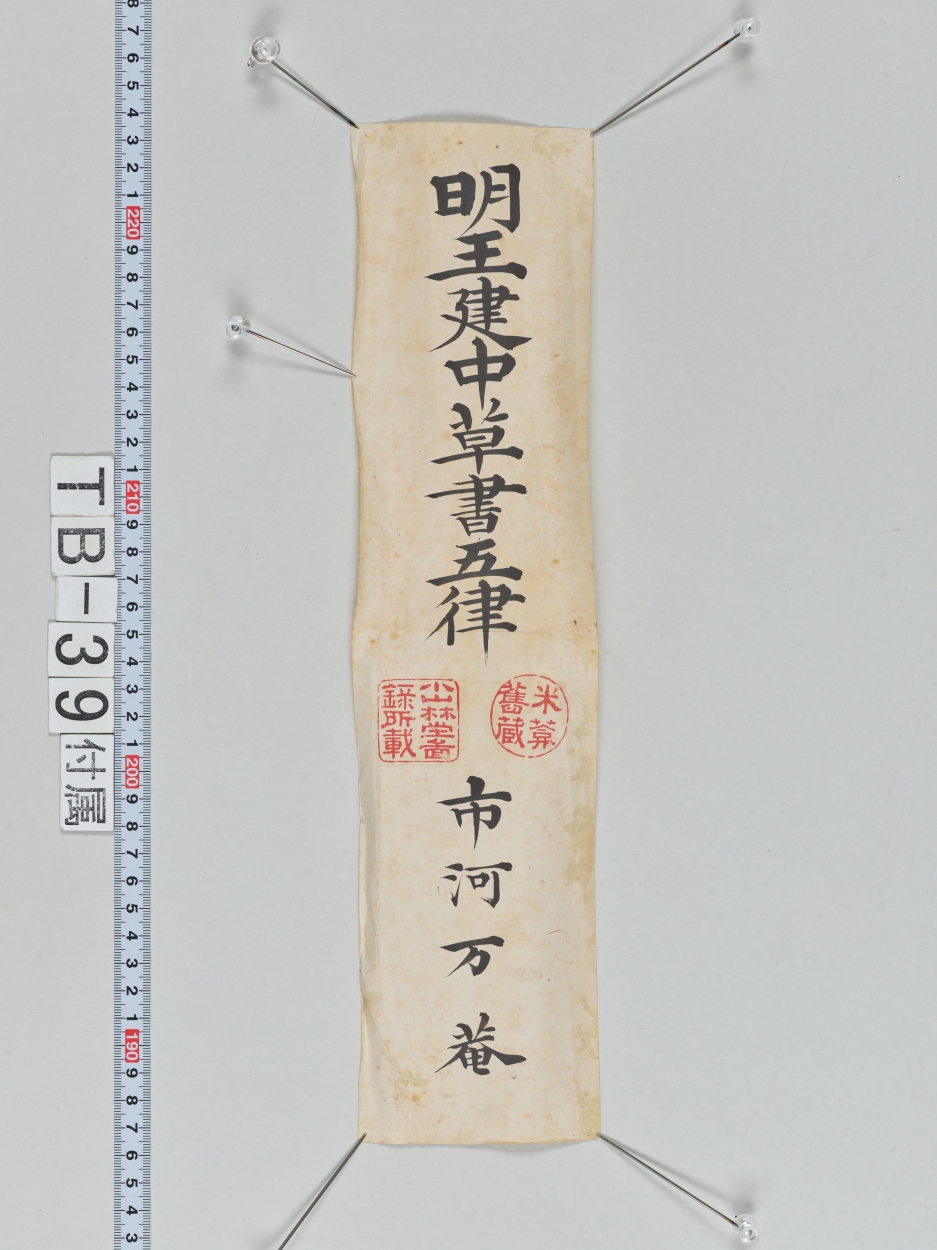 明王建中草書五律
米葊
舊蔵
小山林堂啚
録所載
市河万菴
TB-39付属
8 7 6 5 4 3 2 1 220 9 8 7 6 5 4 3 2 1 210 9 8 7 6 5 4 3 2 1 200 9 8 7 6 5 4 3 2 1 190 9 8 7 6 5 4 3